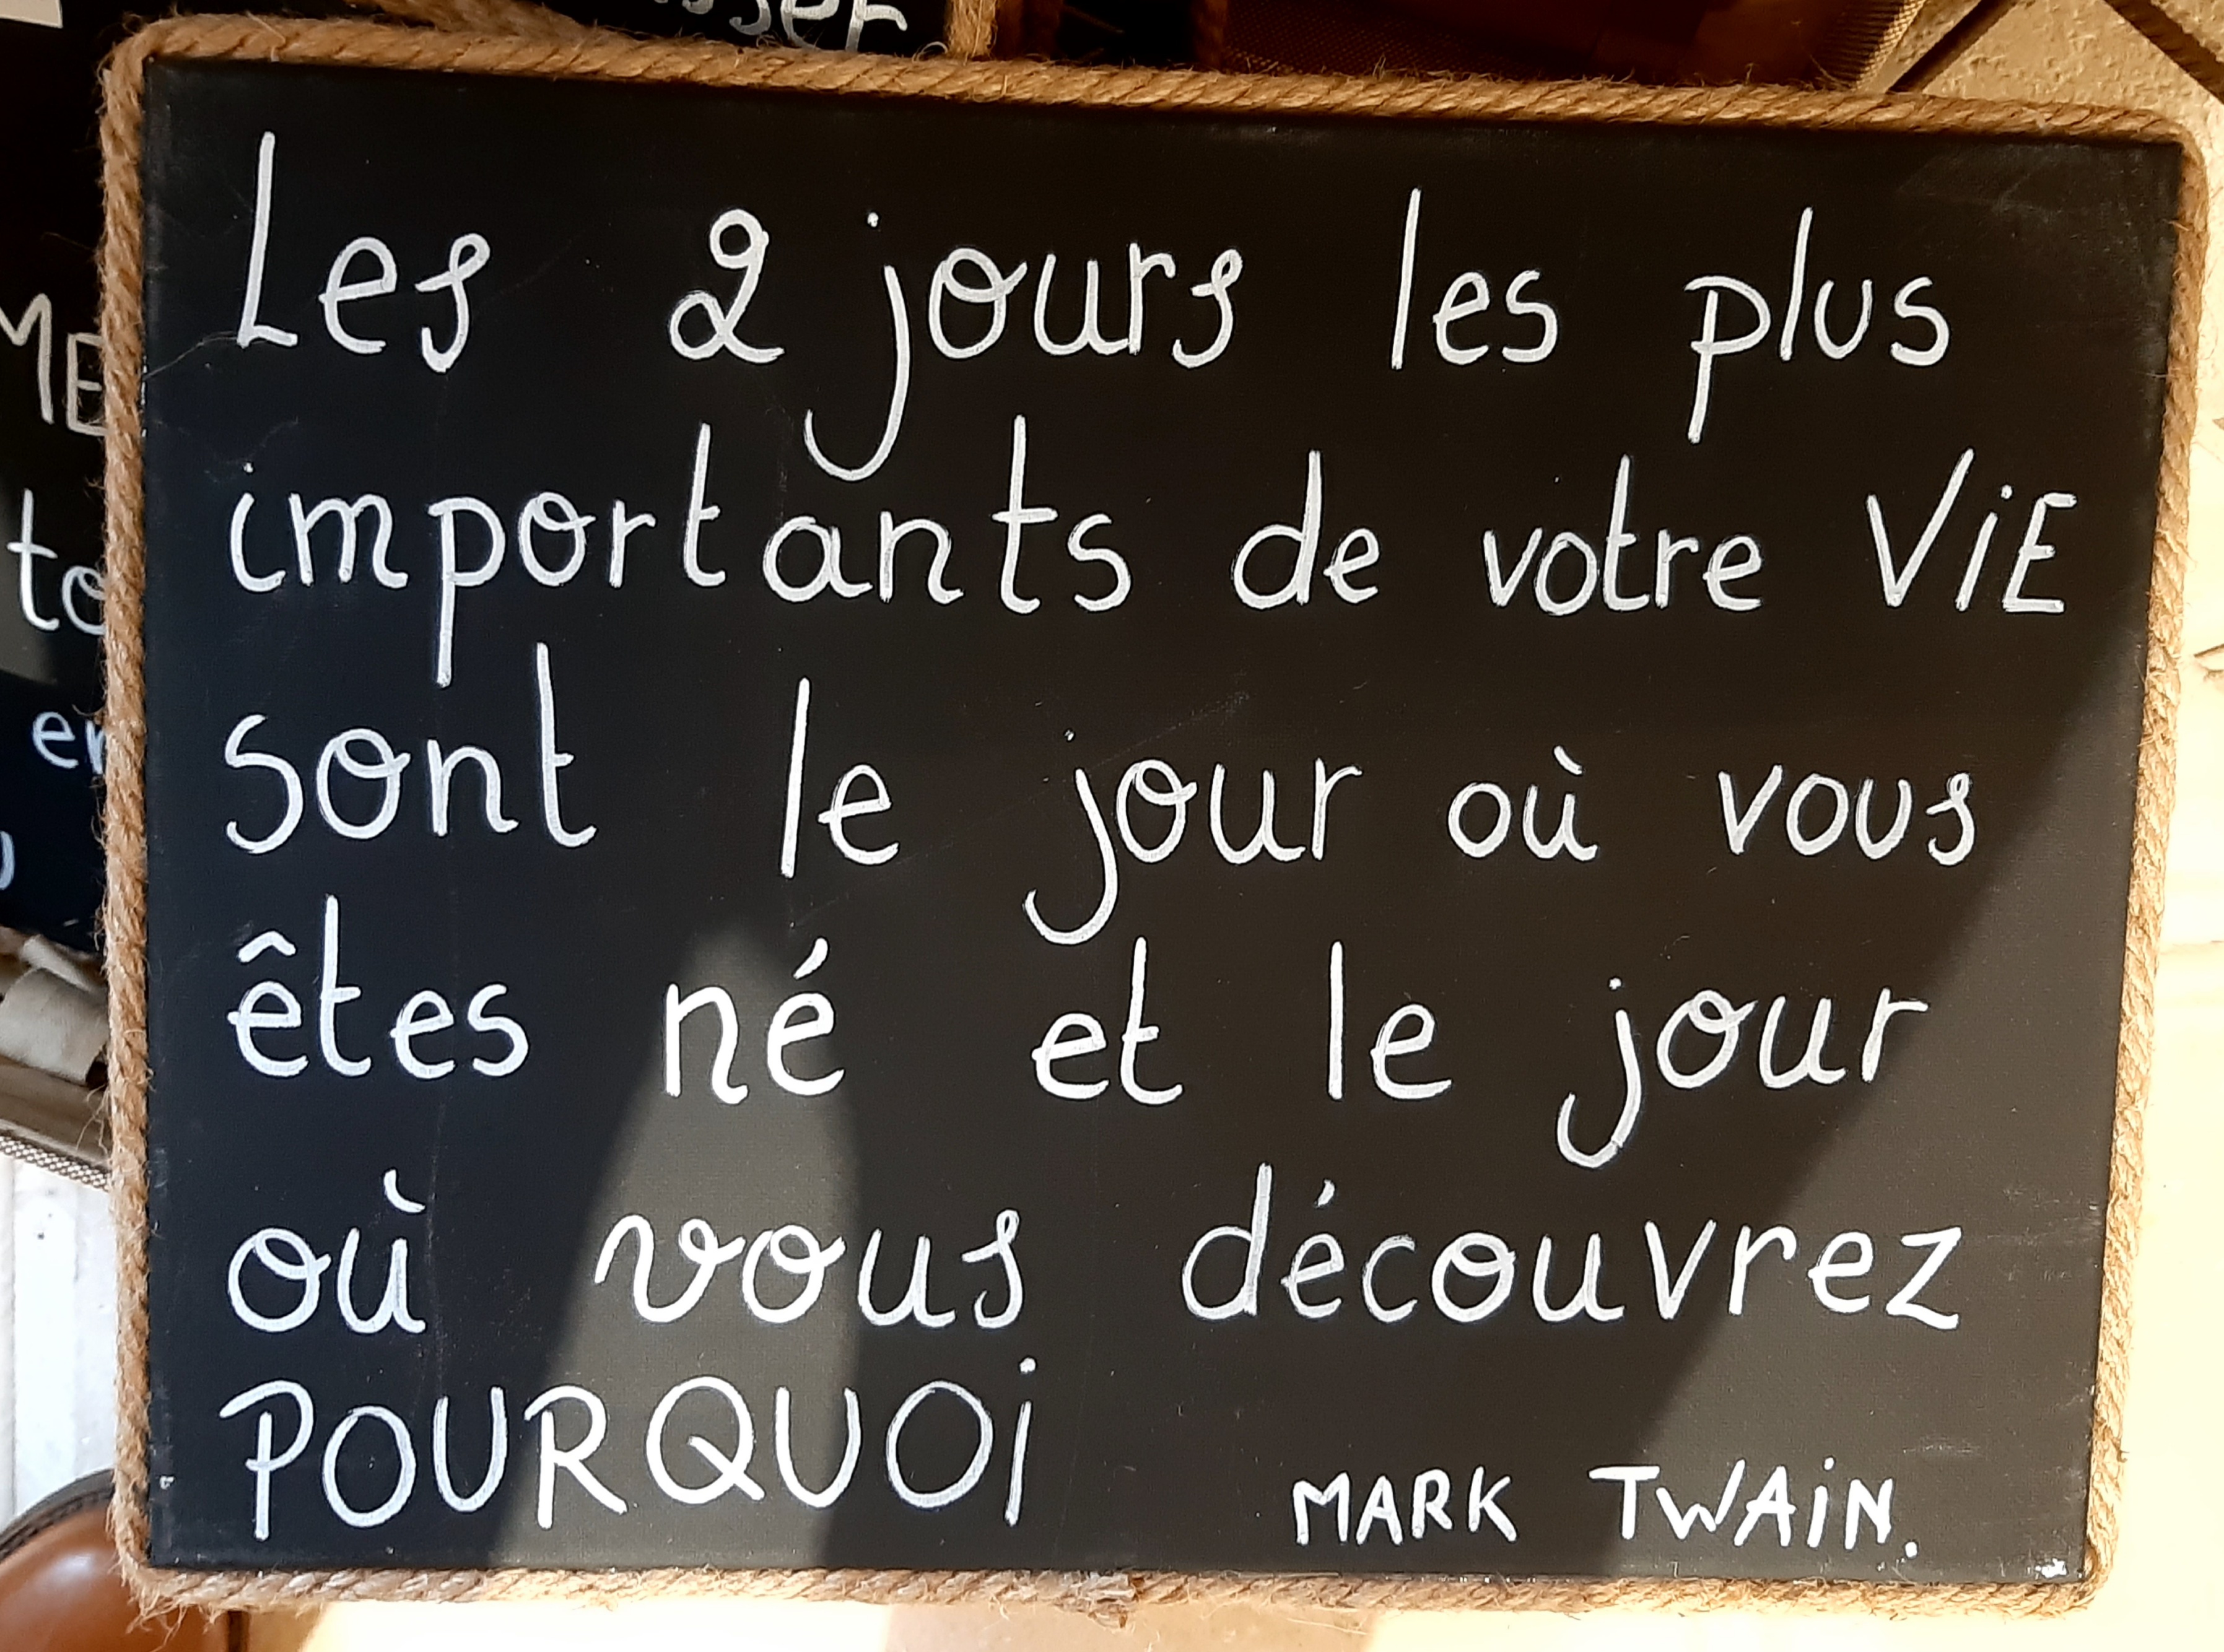 Les 2 jours les plus
importants de votre ViE
sont le jour où vous
êtes né et le jour
où vous découvrez
POURQUOi
MARK TWAiN.